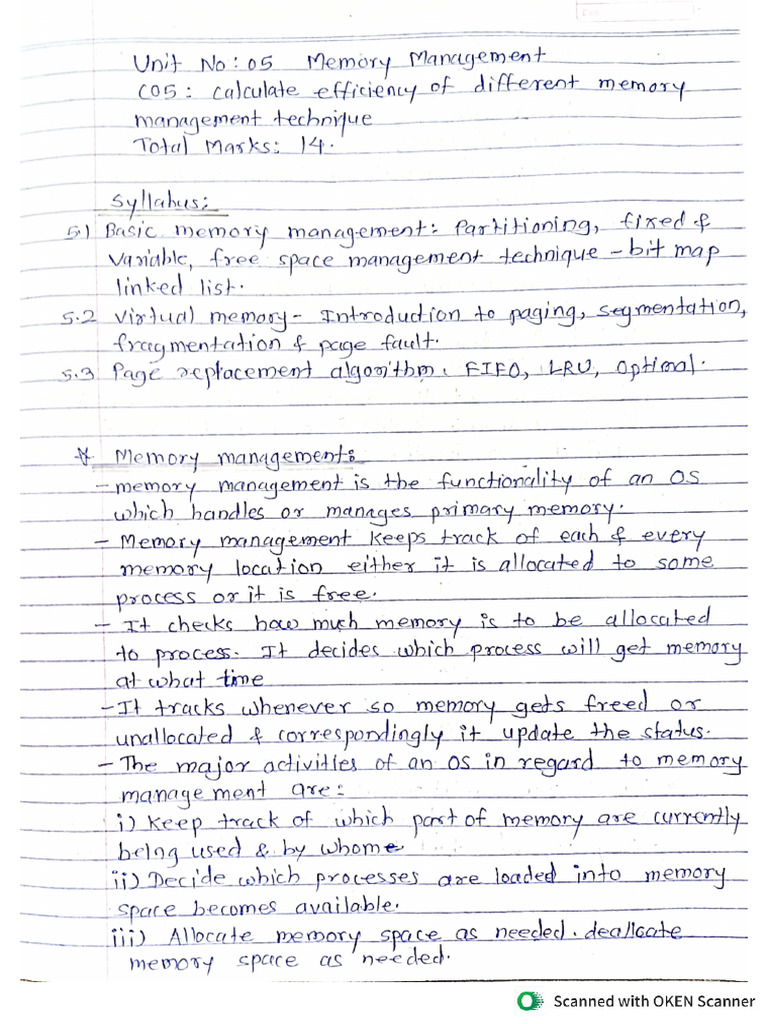 Unit No: 05 Memory Management
CO5: Calculate efficiency of different memory
management technique
Total Marks: 14.
Syllabus:
5.1 Basic memory management: Partitioning, fixed &
Variable, free space management technique - bit map
linked list.
5.2 Virtual memory - Introduction to paging, segmentation,
fragmentation & page fault.
5.3 Page replacement algorithm. FIFO, LRU, Optimal.
* Memory management:
- memory management is the functionality of an OS
which handles or manages primary memory.
- Memory management keeps track of each & every
memory location either it is allocated to some
process or it is free.
- It checks how much memory is to be allocated
to process. It decides which process will get memory
at what time
- It tracks whenever so memory gets freed or
unallocated & correspondingly it update the status.
- The major activities of an OS in regard to memory
management are:
i) Keep track of which part of memory are currently
being used & by whome
ii) Decide which processes are loaded into memory
space becomes available.
iii) Allocate memory space as needed. deallcate
memory space as needed.
Scanned with OKEN Scanner